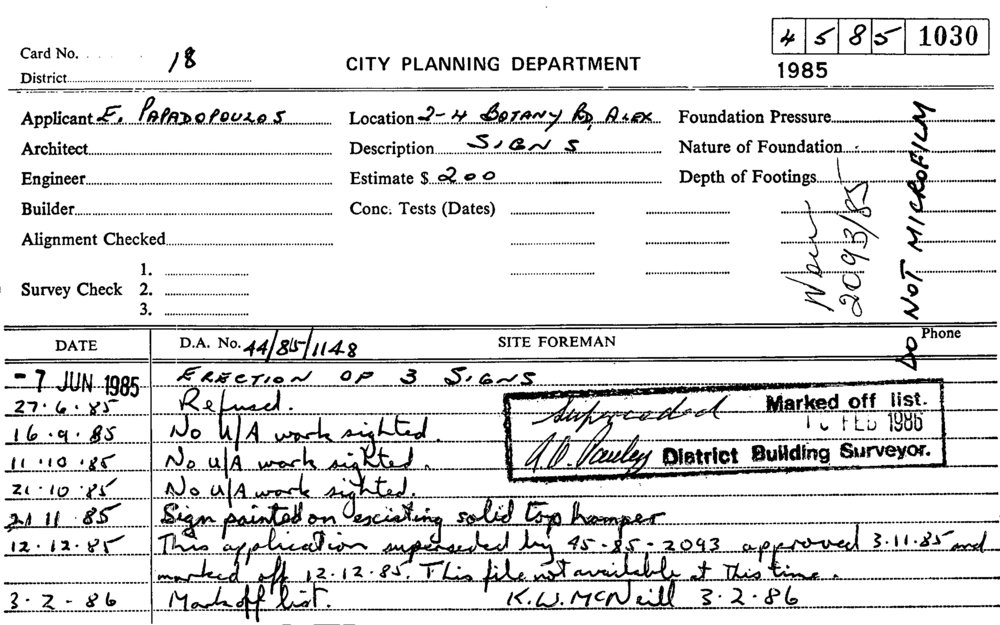 4 5 8 5 1030
1985
Card No. 18
District
CITY PLANNING DEPARTMENT
Applicant E. PAPADOPOULOS Location 2-4 BOTANY RD, ALEX Foundation Pressure
Architect Description SIGNS Nature of Foundation
Engineer Estimate $ 200 Depth of Footings
Builder Conc. Tests (Dates)
Alignment Checked
1.
Survey Check 2.
3.
Now
2093/85
DO NOT MICROFILM
DATE D.A. No. 44/85/1148 SITE FOREMAN Phone
-7 JUN 1985 ERECTION OF 3 SIGNS
27.6.85 Refused.
16.9.85 No U/A work sighted.
11.10.85 No U/A work sighted.
21.10.85 No U/A work sighted.
21 11 85 Sign painted on excisting solid top hamper
12.12.85 This application superseded by 45-85-2093 approved 3.11.85 and
marked off 12.12.85. This file not available at this time.
3-2-86 Mark off list. K.W. McNeill 3.2.86
Superceded Marked off list.
FEB 1986
District Building Surveyor.